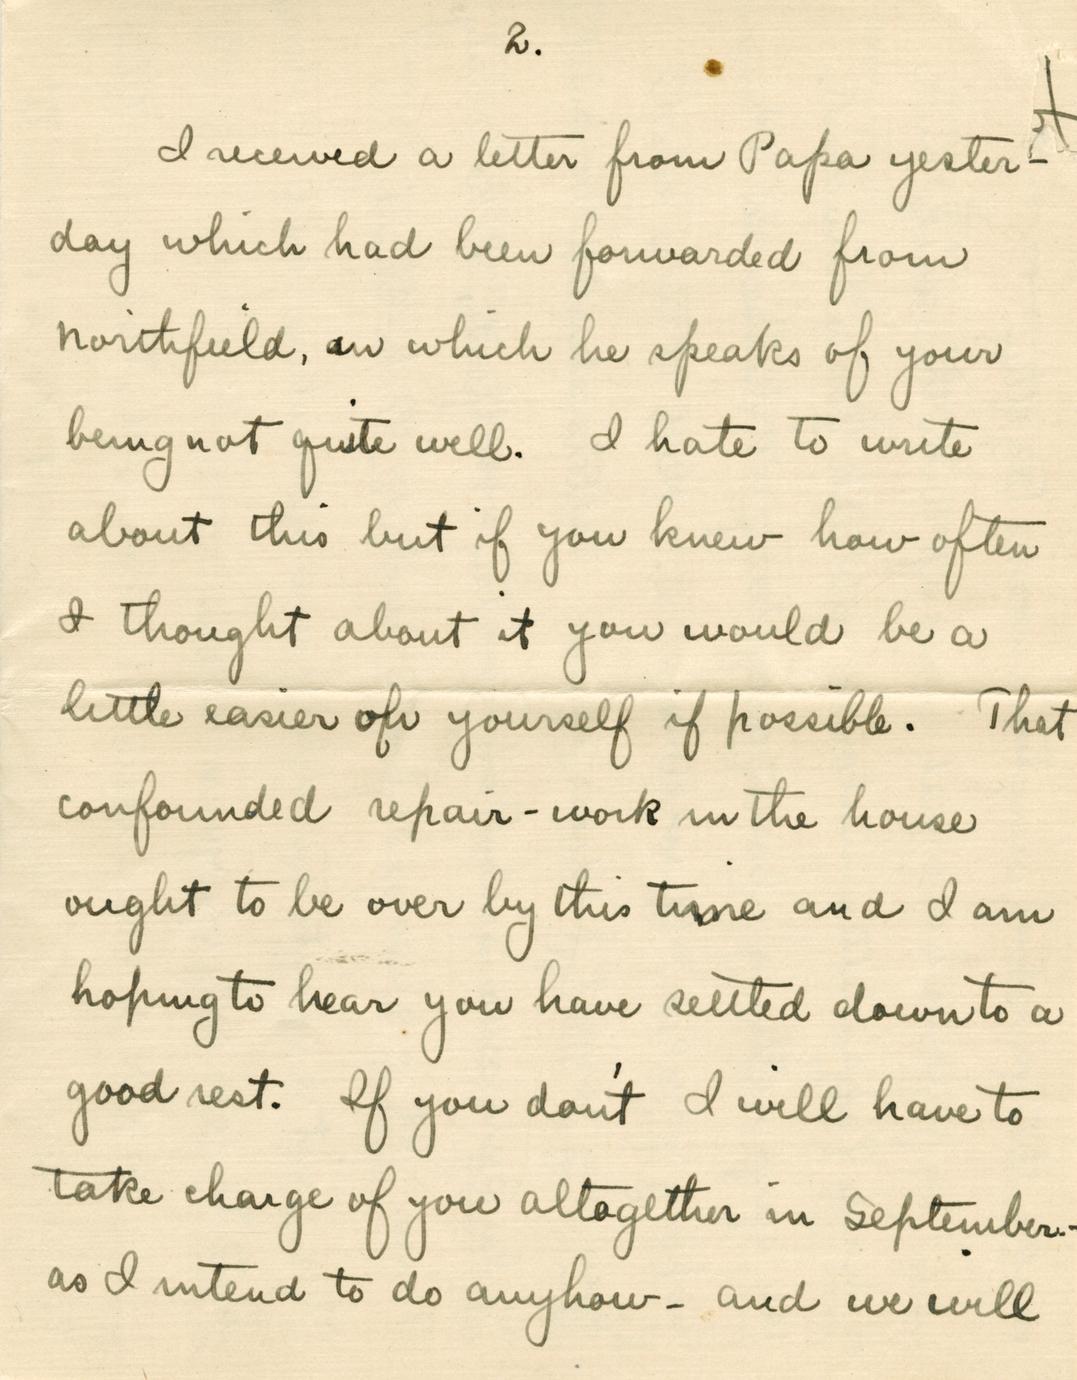 2.
I received a letter from Papa yester-
day which had been forwarded from
Northfield, in which he speaks of your
being not quite well. I hate to write
about this but if you knew how often
I thought about it you would be a
little easier on yourself if possible. That
confounded repair-work in the house
ought to be over by this time and I am
hoping to hear you have settled down to a
good rest. If you don't I will have to
take charge of you altogether in September-
as I intend to do anyhow - and we will